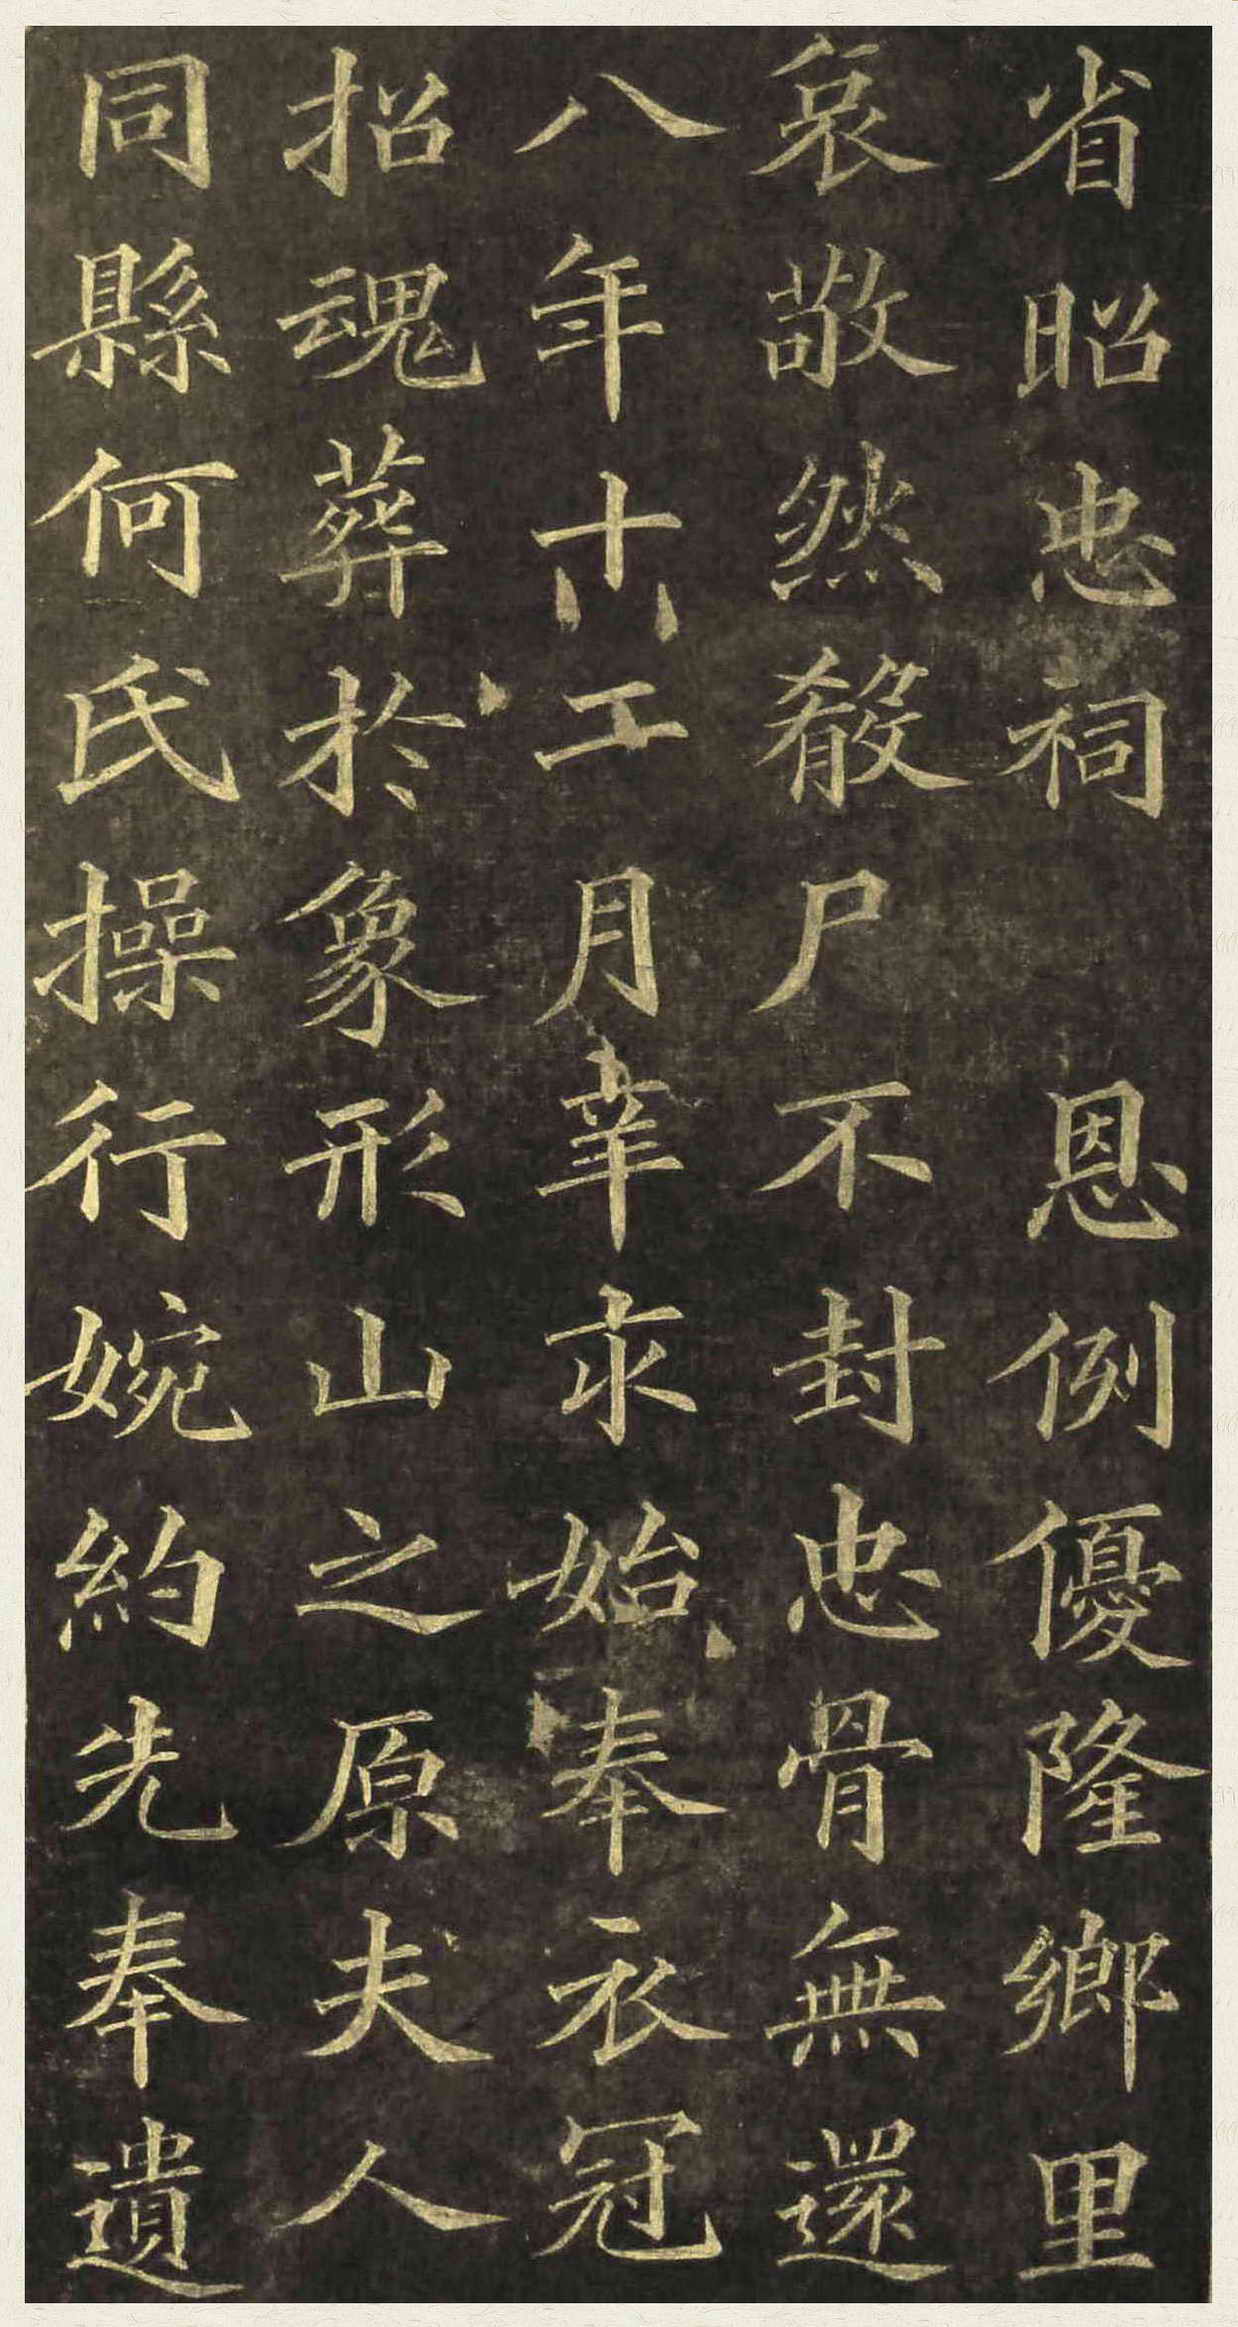 省昭忠祠 恩例優隆鄉里
哀敬然殽尸不封忠骨無還
八年十六工月㓑求始奉衣冠
招魂葬於象形山之原夫人
同縣何氏操行婉約先奉遺